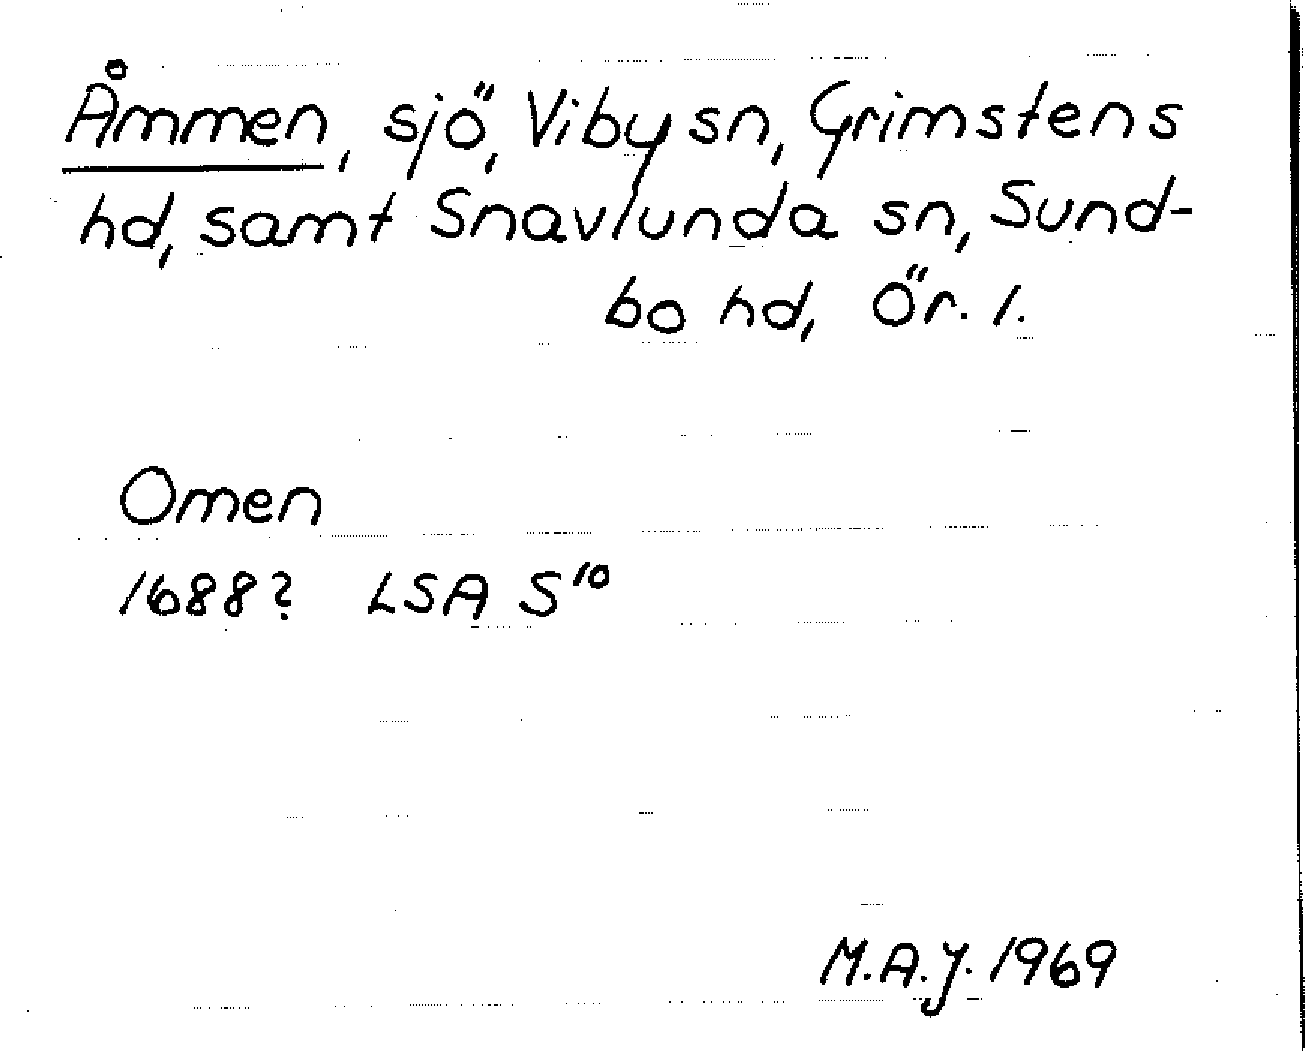 Åmmen, sjö, Viby sn, Grimstens
hd, samt Snavlunda sn, Sund-
bo hd, Ör. l.
Omen
1688? LSA S¹⁰
M.A.J. 1969